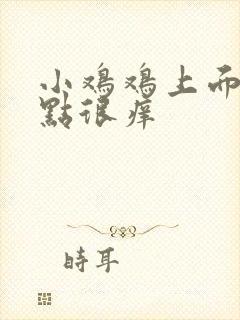 小鸡鸡上
點很痒
時耳